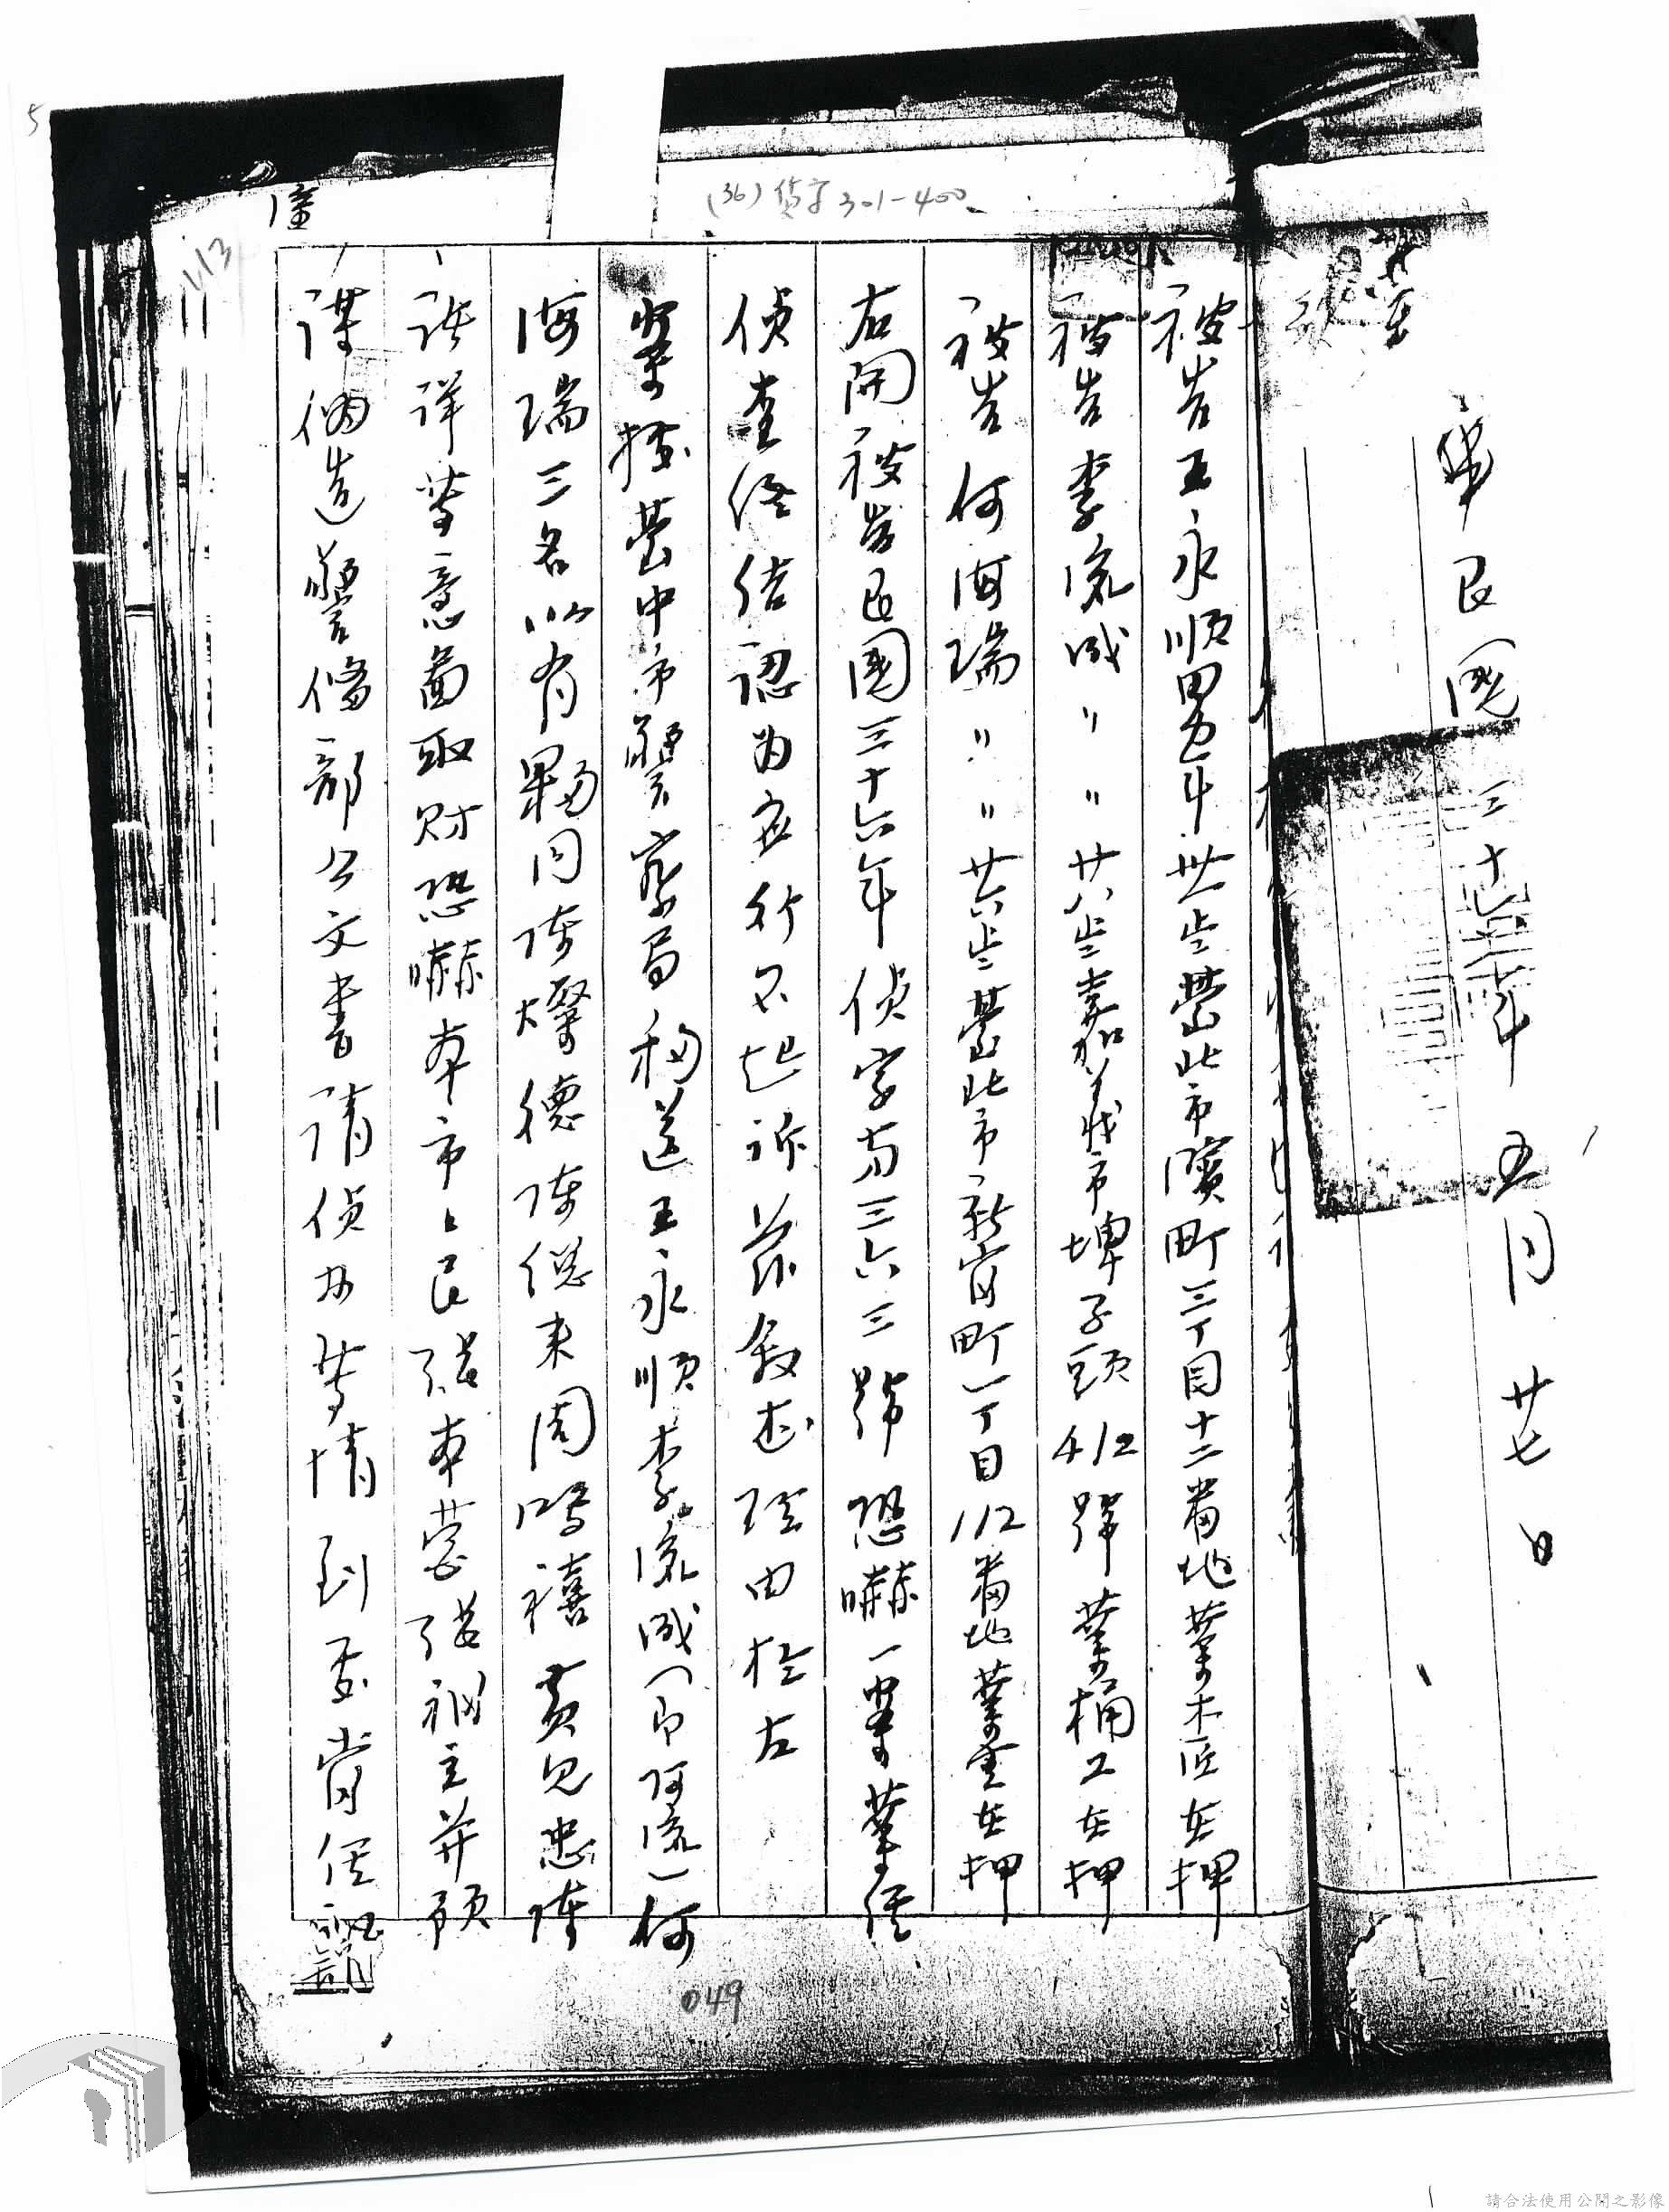 5
(36)偵字301-400
113
中華民國三十六年五月廿七日
被告王永順男卅一岁臺北市濱町三丁目十二番地業木匠在押
被告李流成〃〃廿八岁嘉義市埤子頭412號業桶工在押
被告何海瑞〃〃廿六岁臺北市新富町一丁目112番地業 在押
右開被告民國三十六年偵字第三六三號恐嚇一案業經
偵查終結認为应行不起訴茲敘述理由於左
案據臺中市警察局移送王永順李流成(即阿流)何
海瑞三名以有夥同陳燦德陳 來周鴻禧黃見忠陳
詳等意圖取財恐嚇本市市民張本 張 主并預
謀偽造警備部公文書請偵办等情到處當經
049
請合法使用公開之影像